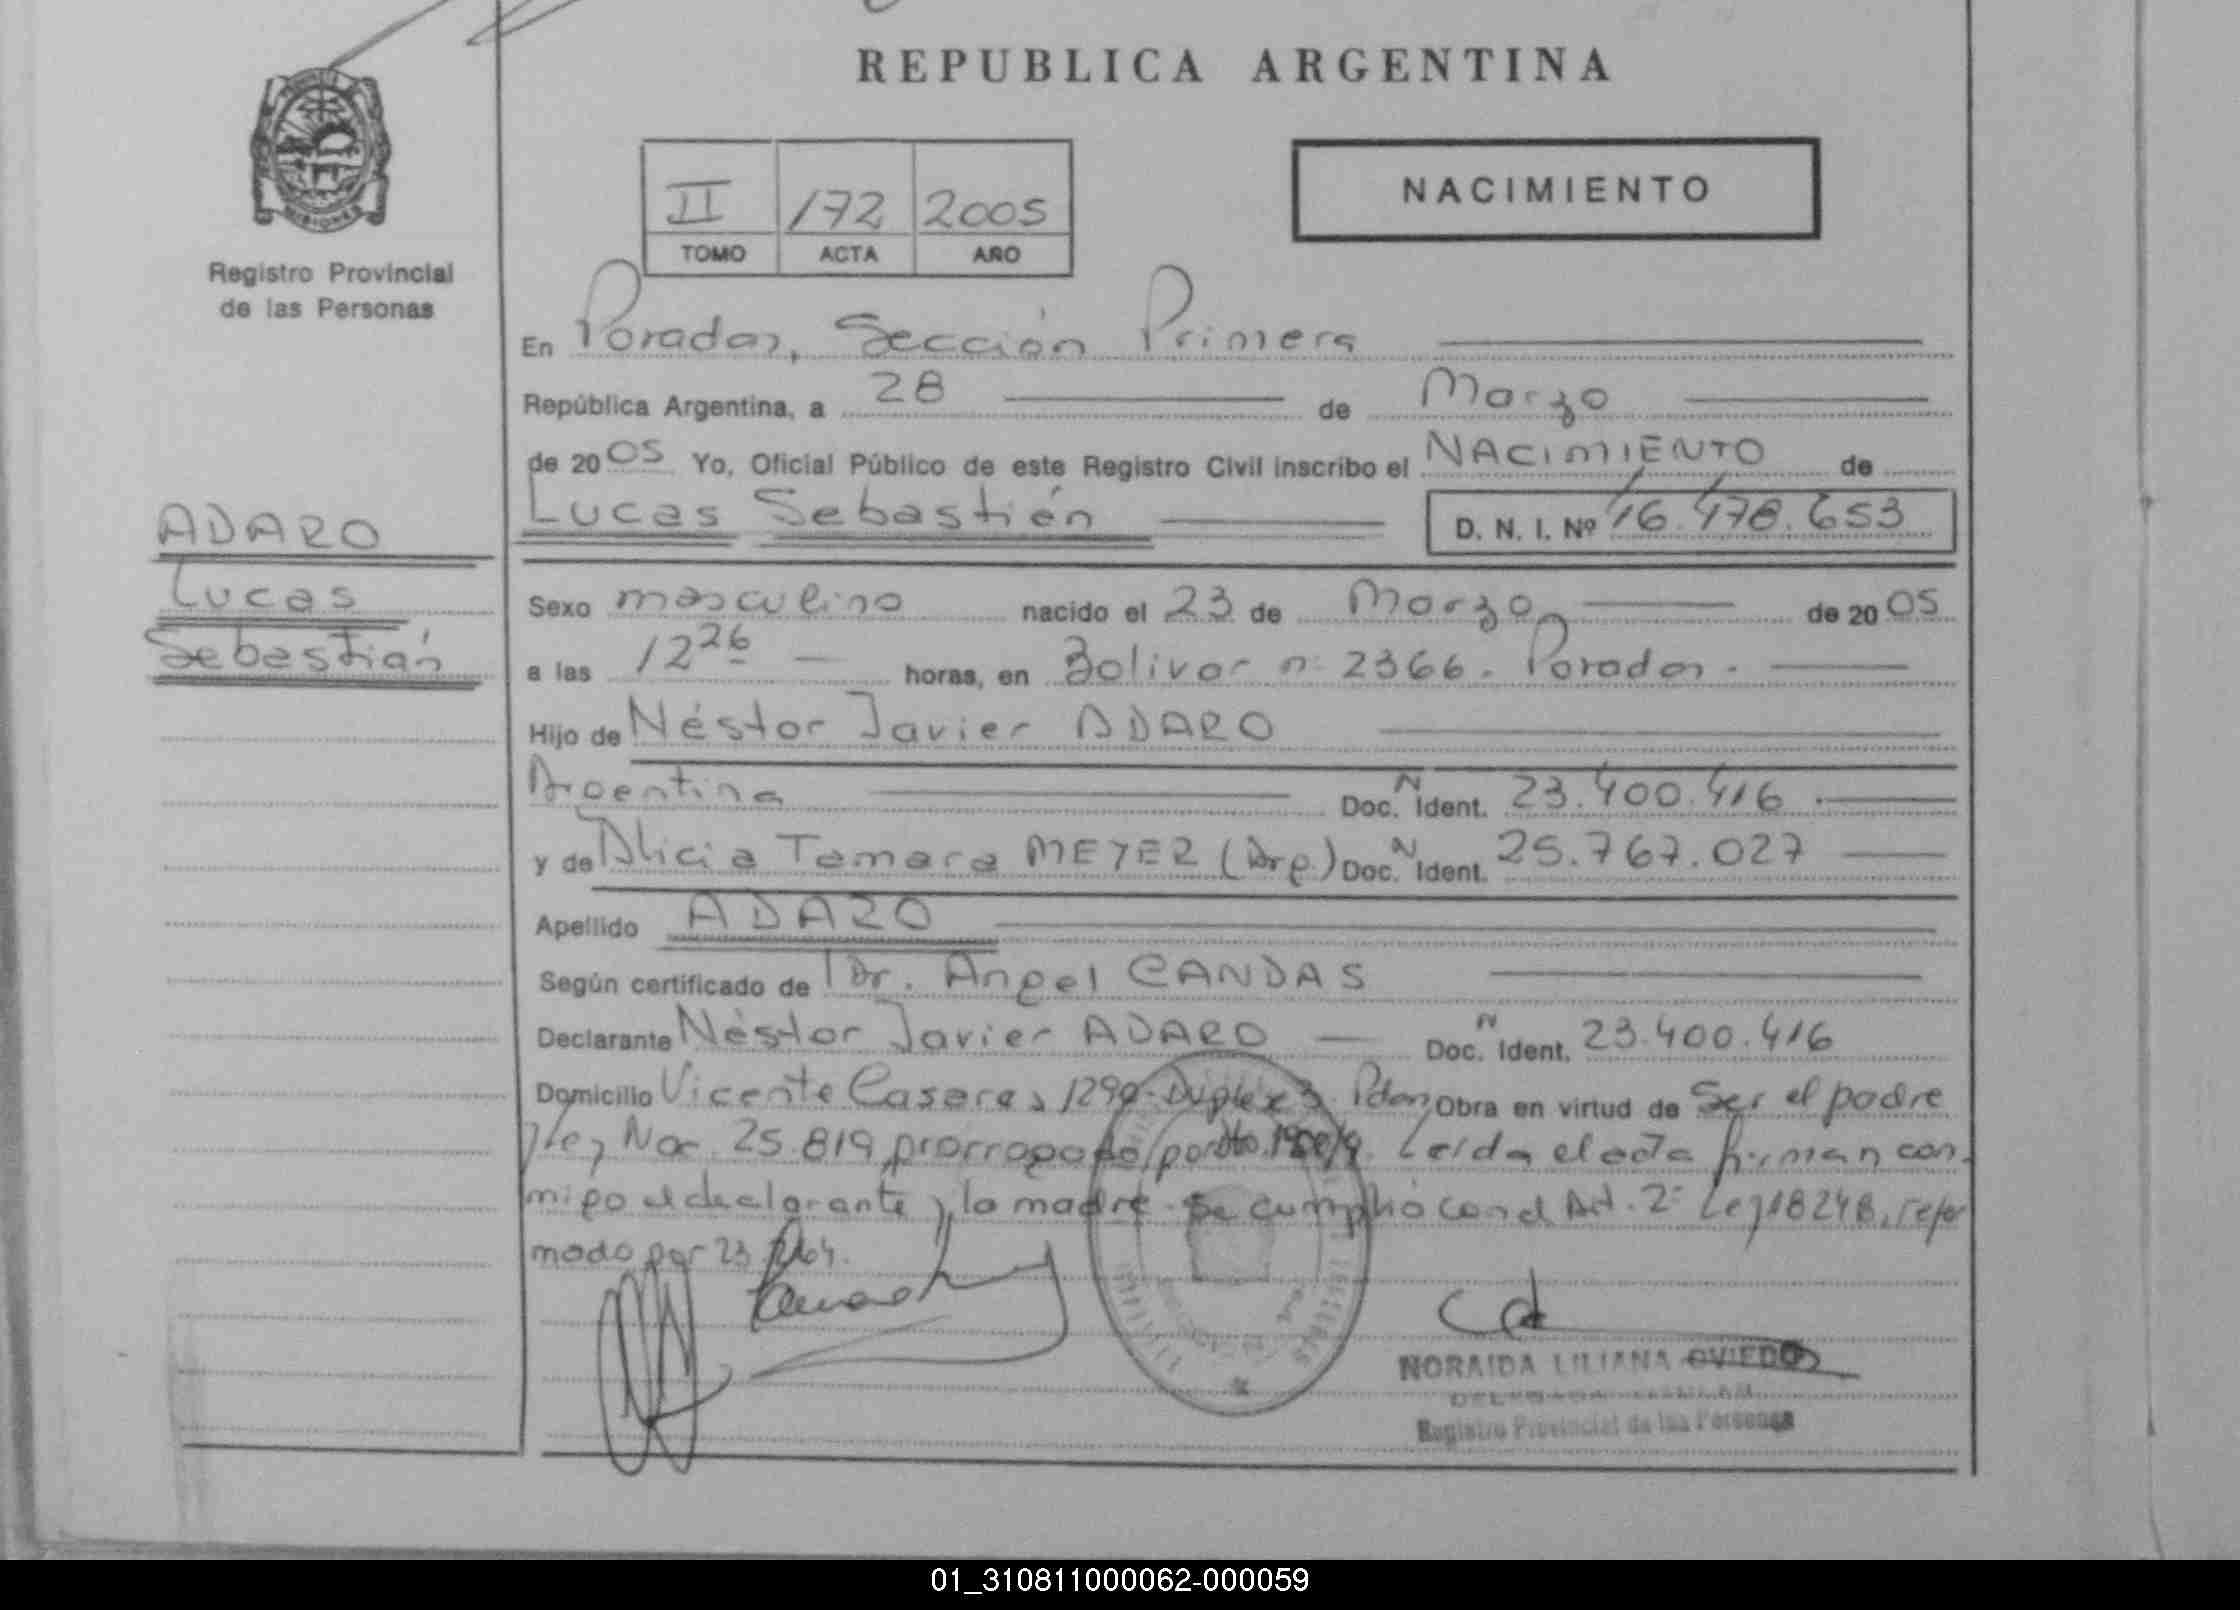 REPUBLICA ARGENTINA
MISIONES
Registro Provincial
de las Personas
NACIMIENTO
II 172 2005
TOMO ACTA AÑO
En Posadas, Sección Primera
República Argentina, a 28 de Marzo
de 2005 Yo, Oficial Público de este Registro Civil inscribo el NACIMIENTO de
Lucas Sebastián D. N. I. Nº 46.478.653
ADARO
Lucas
Sebastián
Sexo masculino nacido el 23 de Marzo de 2005
a las 12 26 horas, en Bolivar n: 2366. Posadas.
Hijo de Néstor Javier ADARO
Argentina Doc. N Ident. 23.400.416
y de Alicia Tamara MEYER (Arg.) Doc. N Ident. 25.767.027
Apellido ADARO
Según certificado de Dr. Angel CANDAS
Declarante Néstor Javier ADARO Doc. N Ident. 23.400.416
Domicilio Vicente Casares 1290 Duplex 3. Pdas Obra en virtud de Ser el padre
y Ley Nac. 25.819, prorrogado por Leída el acta firman con
migo el declarante y la madre. Se cumplió con el Art. 2º Ley 18248, refor
mado por 23
NORAIDA LILIANA OVIEDO
DELEGADA TITULAR
Registro Provincial de las Personas
01_310811000062-000059